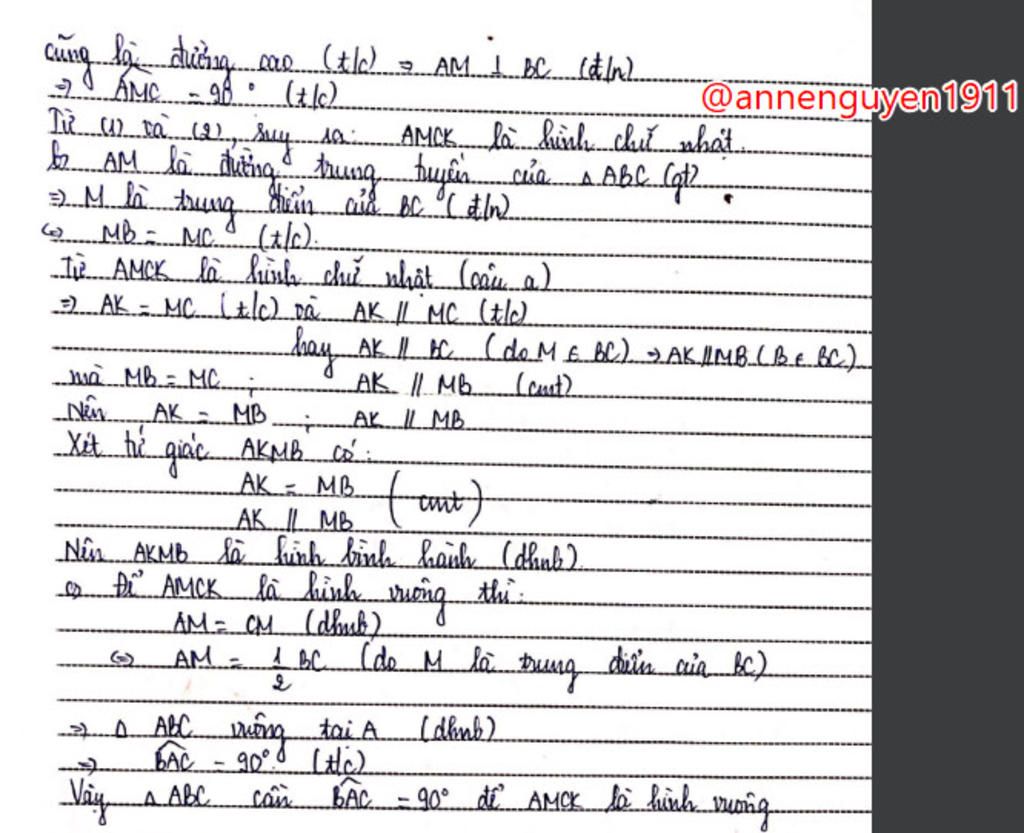 cũng là đường cao (t/c) ⇒ AM ⊥ BC (đ/n)
⇒ AMC = 90° (t/c)
@annenguyen1911
Từ (1) và (2), suy ra: AMCK là hình chữ nhật.
b, AM là đường trung tuyến của △ ABC (gt)
⇒ M là trung điểm của BC (đ/n)
⇔ MB = MC (t/c).
Từ AMCK là hình chữ nhật (câu a)
⇒ AK = MC (t/c) và AK // MC (t/c)
hay AK // BC (do M ∈ BC) ⇒ AK // MB (B ∈ BC)
mà MB = MC ; AK // MB (cmt)
Nên AK = MB ; AK // MB
Xét tứ giác AKMB có:
AK = MB
(cmt)
AK // MB
Nên AKMB là hình bình hành (dhnb)
c, Để AMCK là hình vuông thì:
AM = CM (dhnb)
⇔ AM = 1/2 BC (do M là trung điểm của BC)
⇒ △ ABC vuông tại A (dhnb)
⇒ BAC = 90° (t/c)
Vậy △ ABC cần BAC = 90° để AMCK là hình vuông